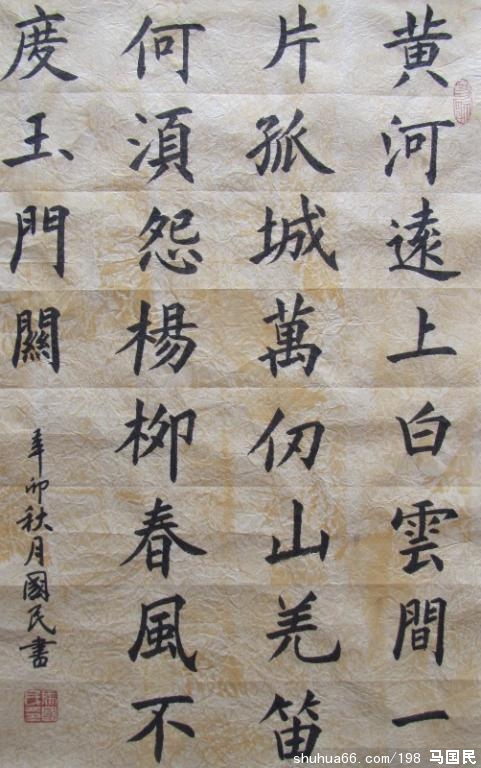 黄河遠上白雲間一
片孤城萬仞山羌笛
何須怨楊柳春風不
度玉門關
辛卯秋月國民書
shuhua66.com/198 马国民